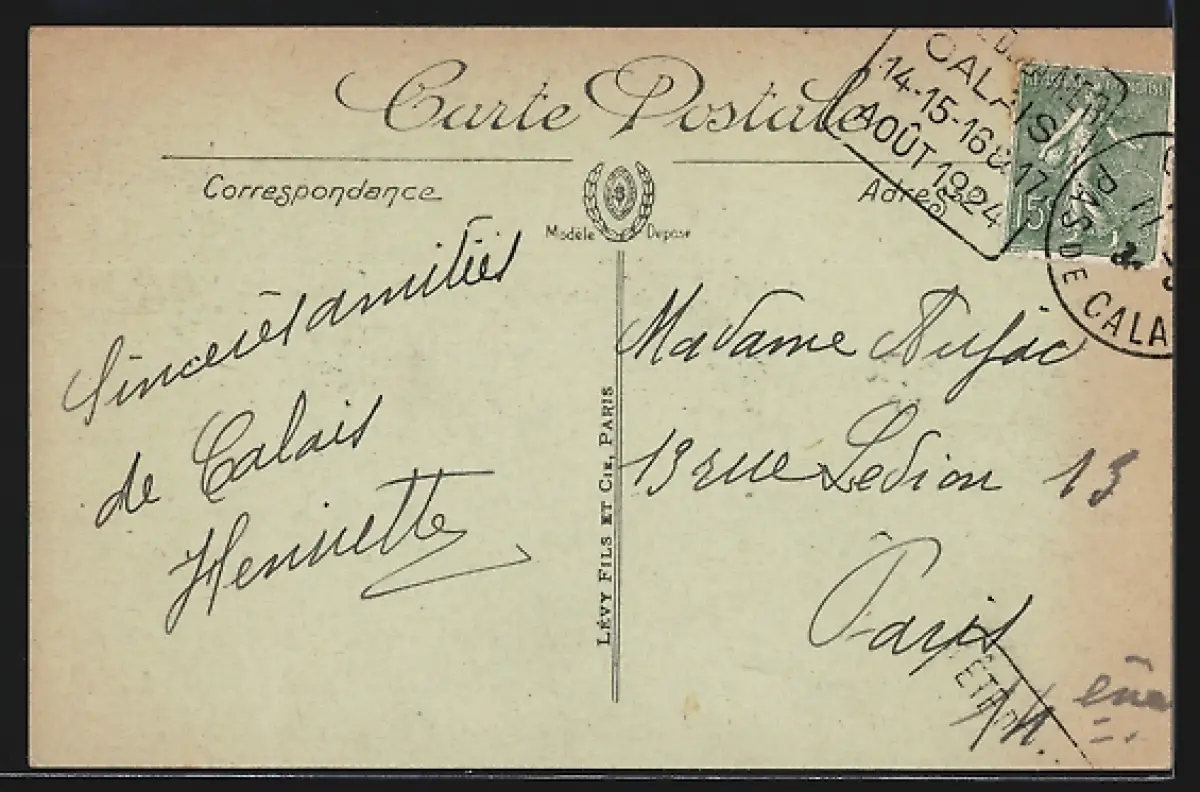 Carte Postale
CALAIS
14-15-16 & 17
AOÛT 1924
15
PAS DE CALA
Correspondance
Adresse
Modèle Déposé
LÉVY FILS ET CIE, PARIS
Sincères amitiés
de Calais
Henriette
Madame
13 rue Ledion 13
Paris